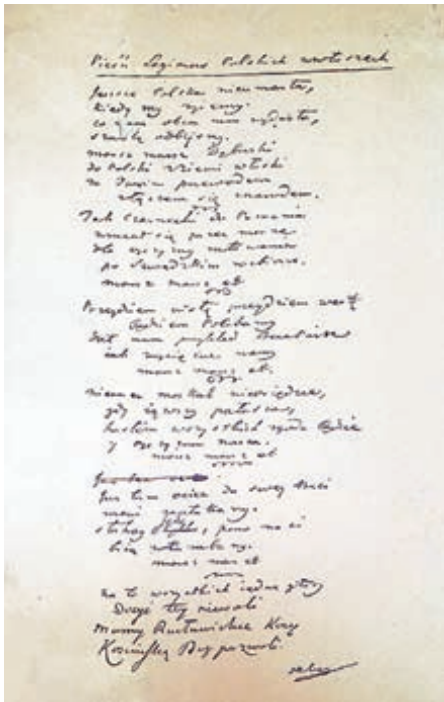 Pieśń Legionów Polskich we włoszech
Jeszcze Polska nie umarła,
kiedy my żyjemy.
co nam obca moc wydarła,
szablą odbijemy.
marsz marsz Dąbrowski
do Polski z ziemi włoski
za Twoim przewodem
złączem się z narodem.
Jak Czarnecki do Poznania
wracał się przez morze
dla ojczyzny ratowania
po Szwedzkim rozbiorze.
marsz marsz et
Przejdziem wisłę przejdziem wartę
będziem Polakamy
dał nam przykład Bonaparte
jak zwyciężać mamy
marsz marsz et.
niemiec moskal nie osiędzie,
gdy jąwszy pałasza,
hasłem wszystkich zgoda będzie
y ojczyzna nasza.
marsz marsz et
Już tam ociec do swey Basi
mówi zapłakany.
słuchay, pono nasi
biią w tarabany.
marsz marsz et
na to wszystkich iedne głosy
Dosyć tey niewoli
mamy Racławickie Kosy
Kościuszkę Bóg pozwoli.